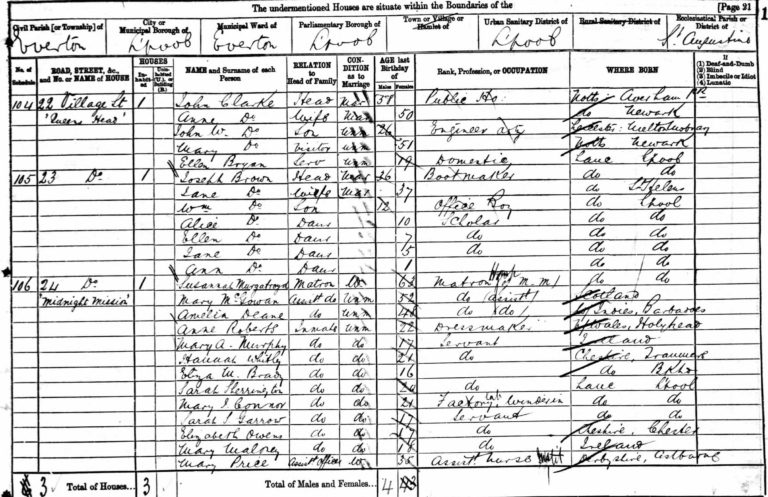 The undermentioned Houses are situate within the Boundaries of the [Page 21
1
Civil Parish [or Township] of Everton
City or Municipal Borough of L'pool
Municipal Ward of Everton
Parliamentary Borough of L'pool
Town or Village or Hamlet of
Urban Sanitary District of L'pool
Rural Sanitary District of
Ecclesiastical Parish or District of St Augustine
No. of Schedule
ROAD, STREET, &c., and No. or NAME of HOUSE
HOUSES
Inhabited
Uninhabited (U.), or Building (B.)
NAME and Surname of each Person
RELATION to Head of Family
CONDITION as to Marriage
AGE last Birthday of
Males
Females
Rank, Profession, or OCCUPATION
WHERE BORN
If
(1) Deaf-and-Dumb
(2) Blind
(3) Imbecile or Idiot
(4) Lunatic
104 22 Village St 1 John Clarke Head Mar 58 Public Ho. Notts
'Queens Head' Anne Do Wife Mar 50 do Newark
John W. Do Son Unm 26 Engineer Leicester Melton Mowbray
Mary Do Visitor Unm 51 Notts Newark
Ellen Bryan Serv Unm 19 Domestic Lanc L'pool
105 23 Do 1 Joseph Brown Head Mar 36 Bootmaker do St Helens
Jane Do Wife Mar 37 do L'pool
Wm Do Son 12 Office Boy do do
Alice Do Daur 10 Scholar do do
Ellen Do Daur 7 do do do
Jane Do Daur 5 do do do
Ann Do Daur 1 do do
106 24 Do 1 Susannah Murgatroyd Matron W 63 Matron Hosp (M.M) do do
'Midnight Mission' Mary McGowan Assistt do Unm 52 do (Assistt) Scotland
Amelia Deane do Unm do do W Indies, Barbados
Anne Roberts Inmate Unm 22 Dressmaker N Wales, Holyhead
Mary A. Murphy do do 17 Servant Ireland
Hannah Whitby do do 21 do Cheshire, Tranmere
Eliza M. Brady do do 16 do B'khd
Sarah Sherrington do do 20 do Lanc L'pool
Mary J Connor do do 21 Factory do do
Sarah J Garrow do do 17 Servant do do
Elizabeth Owens do do 17 do Cheshire, Chester
Mary Maloney do do 18 do Ireland
Mary Price Assistt officer W 36 Assistt Nurse Derbyshire, Ashbourne
3 Total of Houses... 3
Total of Males and Females... 4